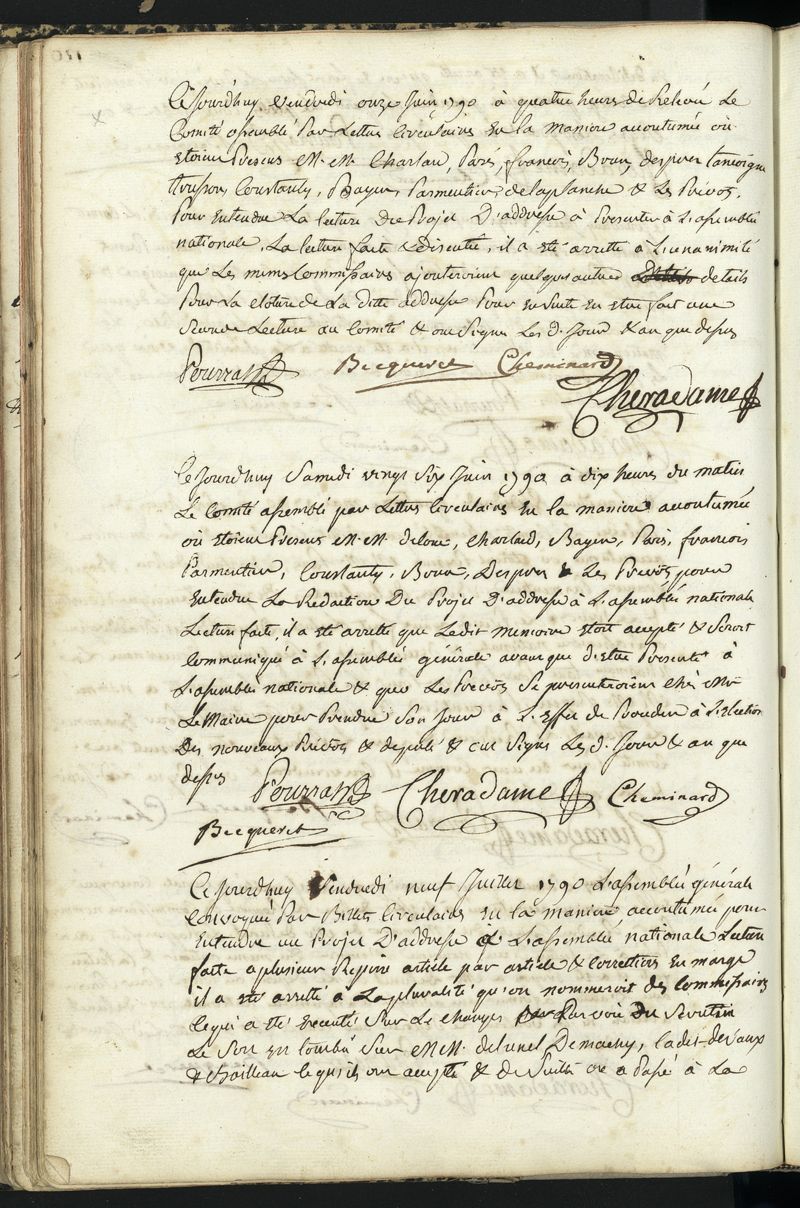 Ce Jourdhuy Vendredi onze Juin 1790 à quatre heures de Relevée Le
Comité assemblé Par Lettres Circulaires en la maniere accoutumée où
Etoient Presens M.M. Charlar, Paris, francois, Brun, desprer
trusson, Coustanty, Bayen, Parmentier, delaplanche & Les Prévôts.
Pour Entendre La lecture du Projet D'addresse à Presenter à L'assemblée
nationale. La lecture faite & discutée, il a été arretté à L'unanimité
que Les mêmes Commissaires ajouteroient quelques autres details
Pour La cloture de La ditte addresse Pour Ensuite En etre fait une
Seconde Lecture au Comité & ont Signé Les d. Jour & an que dessus
Pourrat Becqueret Cheminard
Cheradame
Ce Jourdhuy Samedi vingt Six Juin 1790 à dix heures du matin
Le Comité assemblé par Lettres Circulaires en la maniere accoutumée
où Etoient Presens M.M. delone, Charlard, Bayen, Paris, francois
Parmentier, Coustanty, Brun, Desprer & Les Prevôts pour
Entendre La Redaction Du Projet D'addresse à L'assemblée nationale
Lecture faite, il a été arretté que Ledit Memoire étoit accepté & Seroit
Communiqué à L'assemblée générale avant que d'etre Presenté à
L'assemblée nationale & que Les Prevôts Se presenteroient chés Mr
Le Maire pour Prendre Son Jour à L'effet de Proceder à L'Election
Des nouveaux Prévôts & deputé & ont Signé Les d. Jour & an que
dessus Pourrat Cheradame Cheminard
Becqueret
Ce Jourdhuy Vendredi neuf Juillet 1790 L'assemblée générale
Convoquée Par Billets Circulaires en la maniere accoutumée pour
Entendre un Projet D'addresse à L'assemblée nationale Lecture
faite a plusieurs Reprises article par article & correttions En marge
il a été arretté à La pluralité qu'on nommeroit des Commissaires
lequi a été executé Sur Le champ Par voie Du Scrutin
Le Sort en tombé Sur M.M. delunel Demachy, Cadet-devaux
& Chailleau lequels ont accepté & de Suitte on a Passé à La